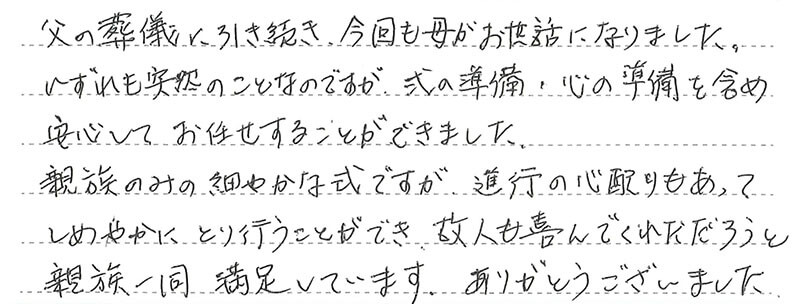 父の葬儀に引き続き、今回も母がお世話になりました。
いずれも突然のことなのですが、式の準備・心の準備を含め
安心して お任せすることができました、
親族のみの細やかな式ですが、進行の心配りもあって
しめやかに とり行うことができ、故人も喜んでくれただろうと
親族一同 満足しています。ありがとうございました